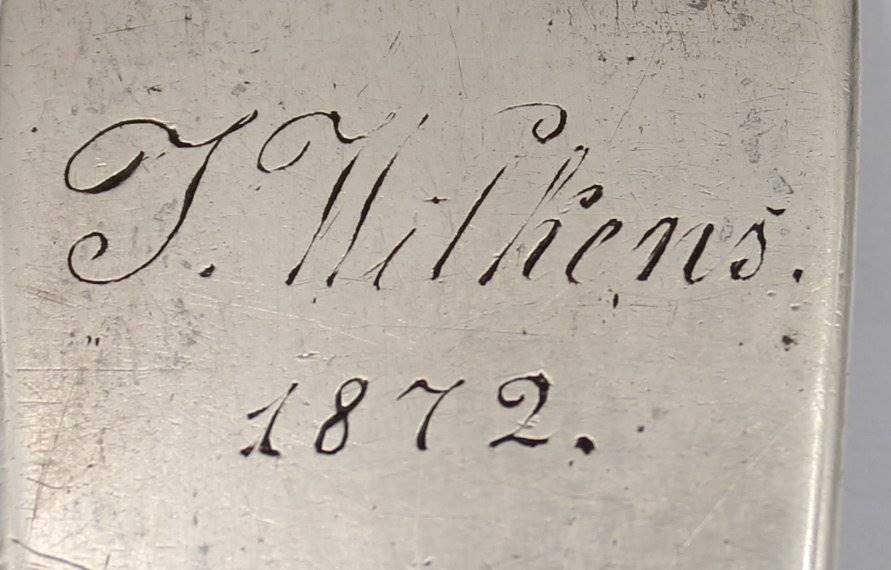 J. Wilkens.
1872.